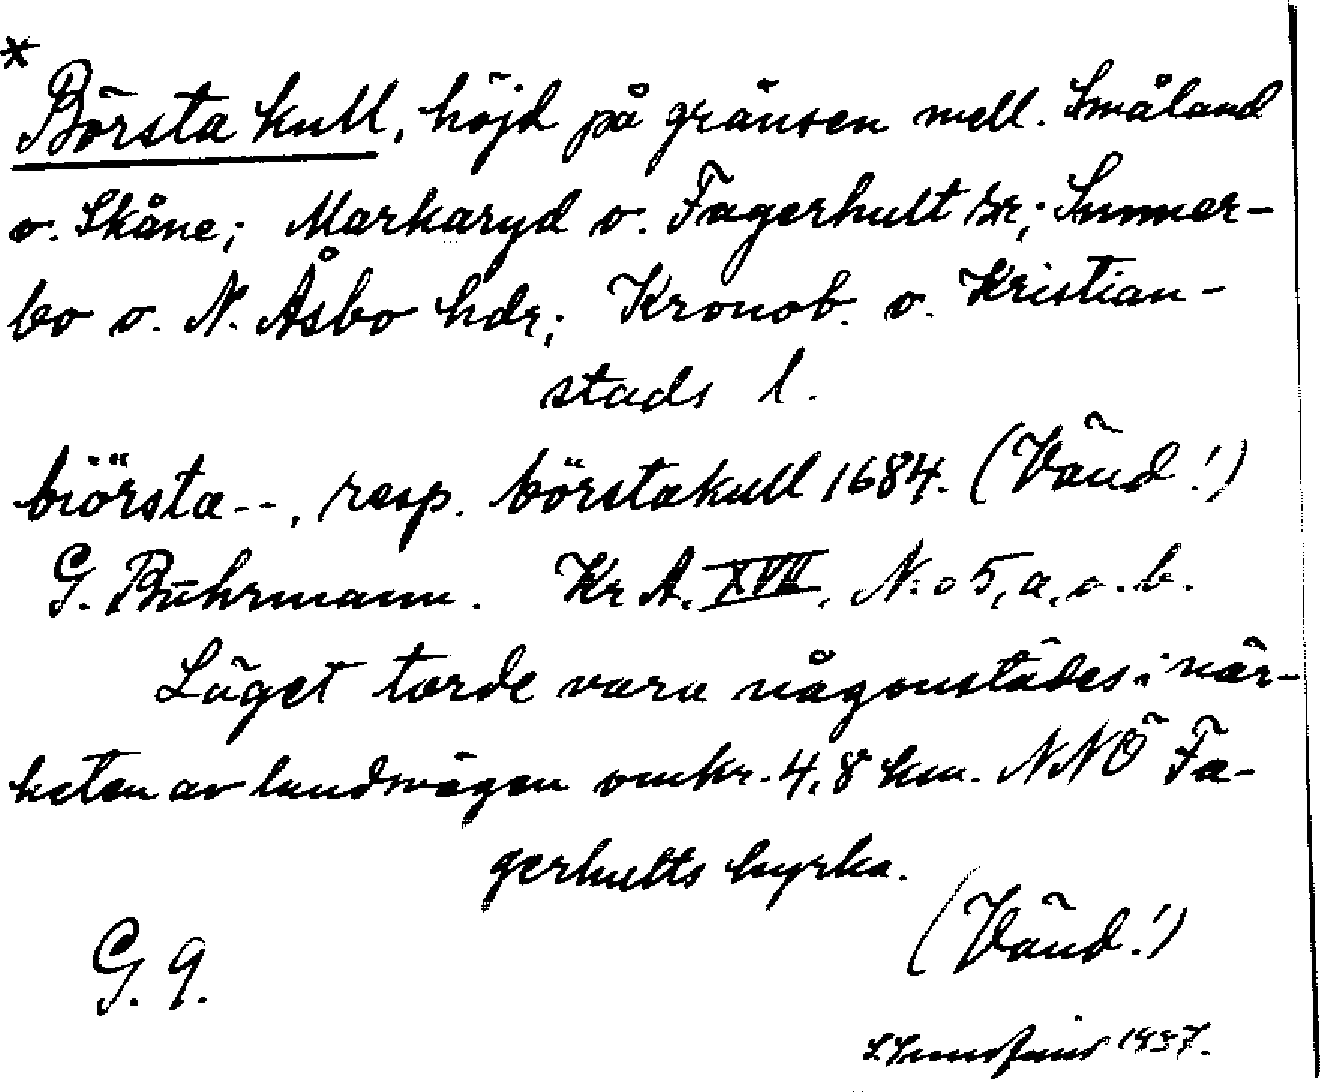 *
Börsta kull, höjd på gränsen mell. Småland
o. Skåne; Markaryd o. Fagerhult sr; Sunner-
bo o. N. Åsbo hdr; Kronob. o. Kristian-
stads l.
börsta--, resp. börstakull 1684. (Vänd!)
G. Buhrmann. Kr. A. XVII, N:o 5, a, o. b.
Läget torde vara någonstädes i när-
heten av landsvägen omkr. 4,8 km. NNÖ Fa-
gerhults kyrka.
(Vänd!)
G. 9.
1937.